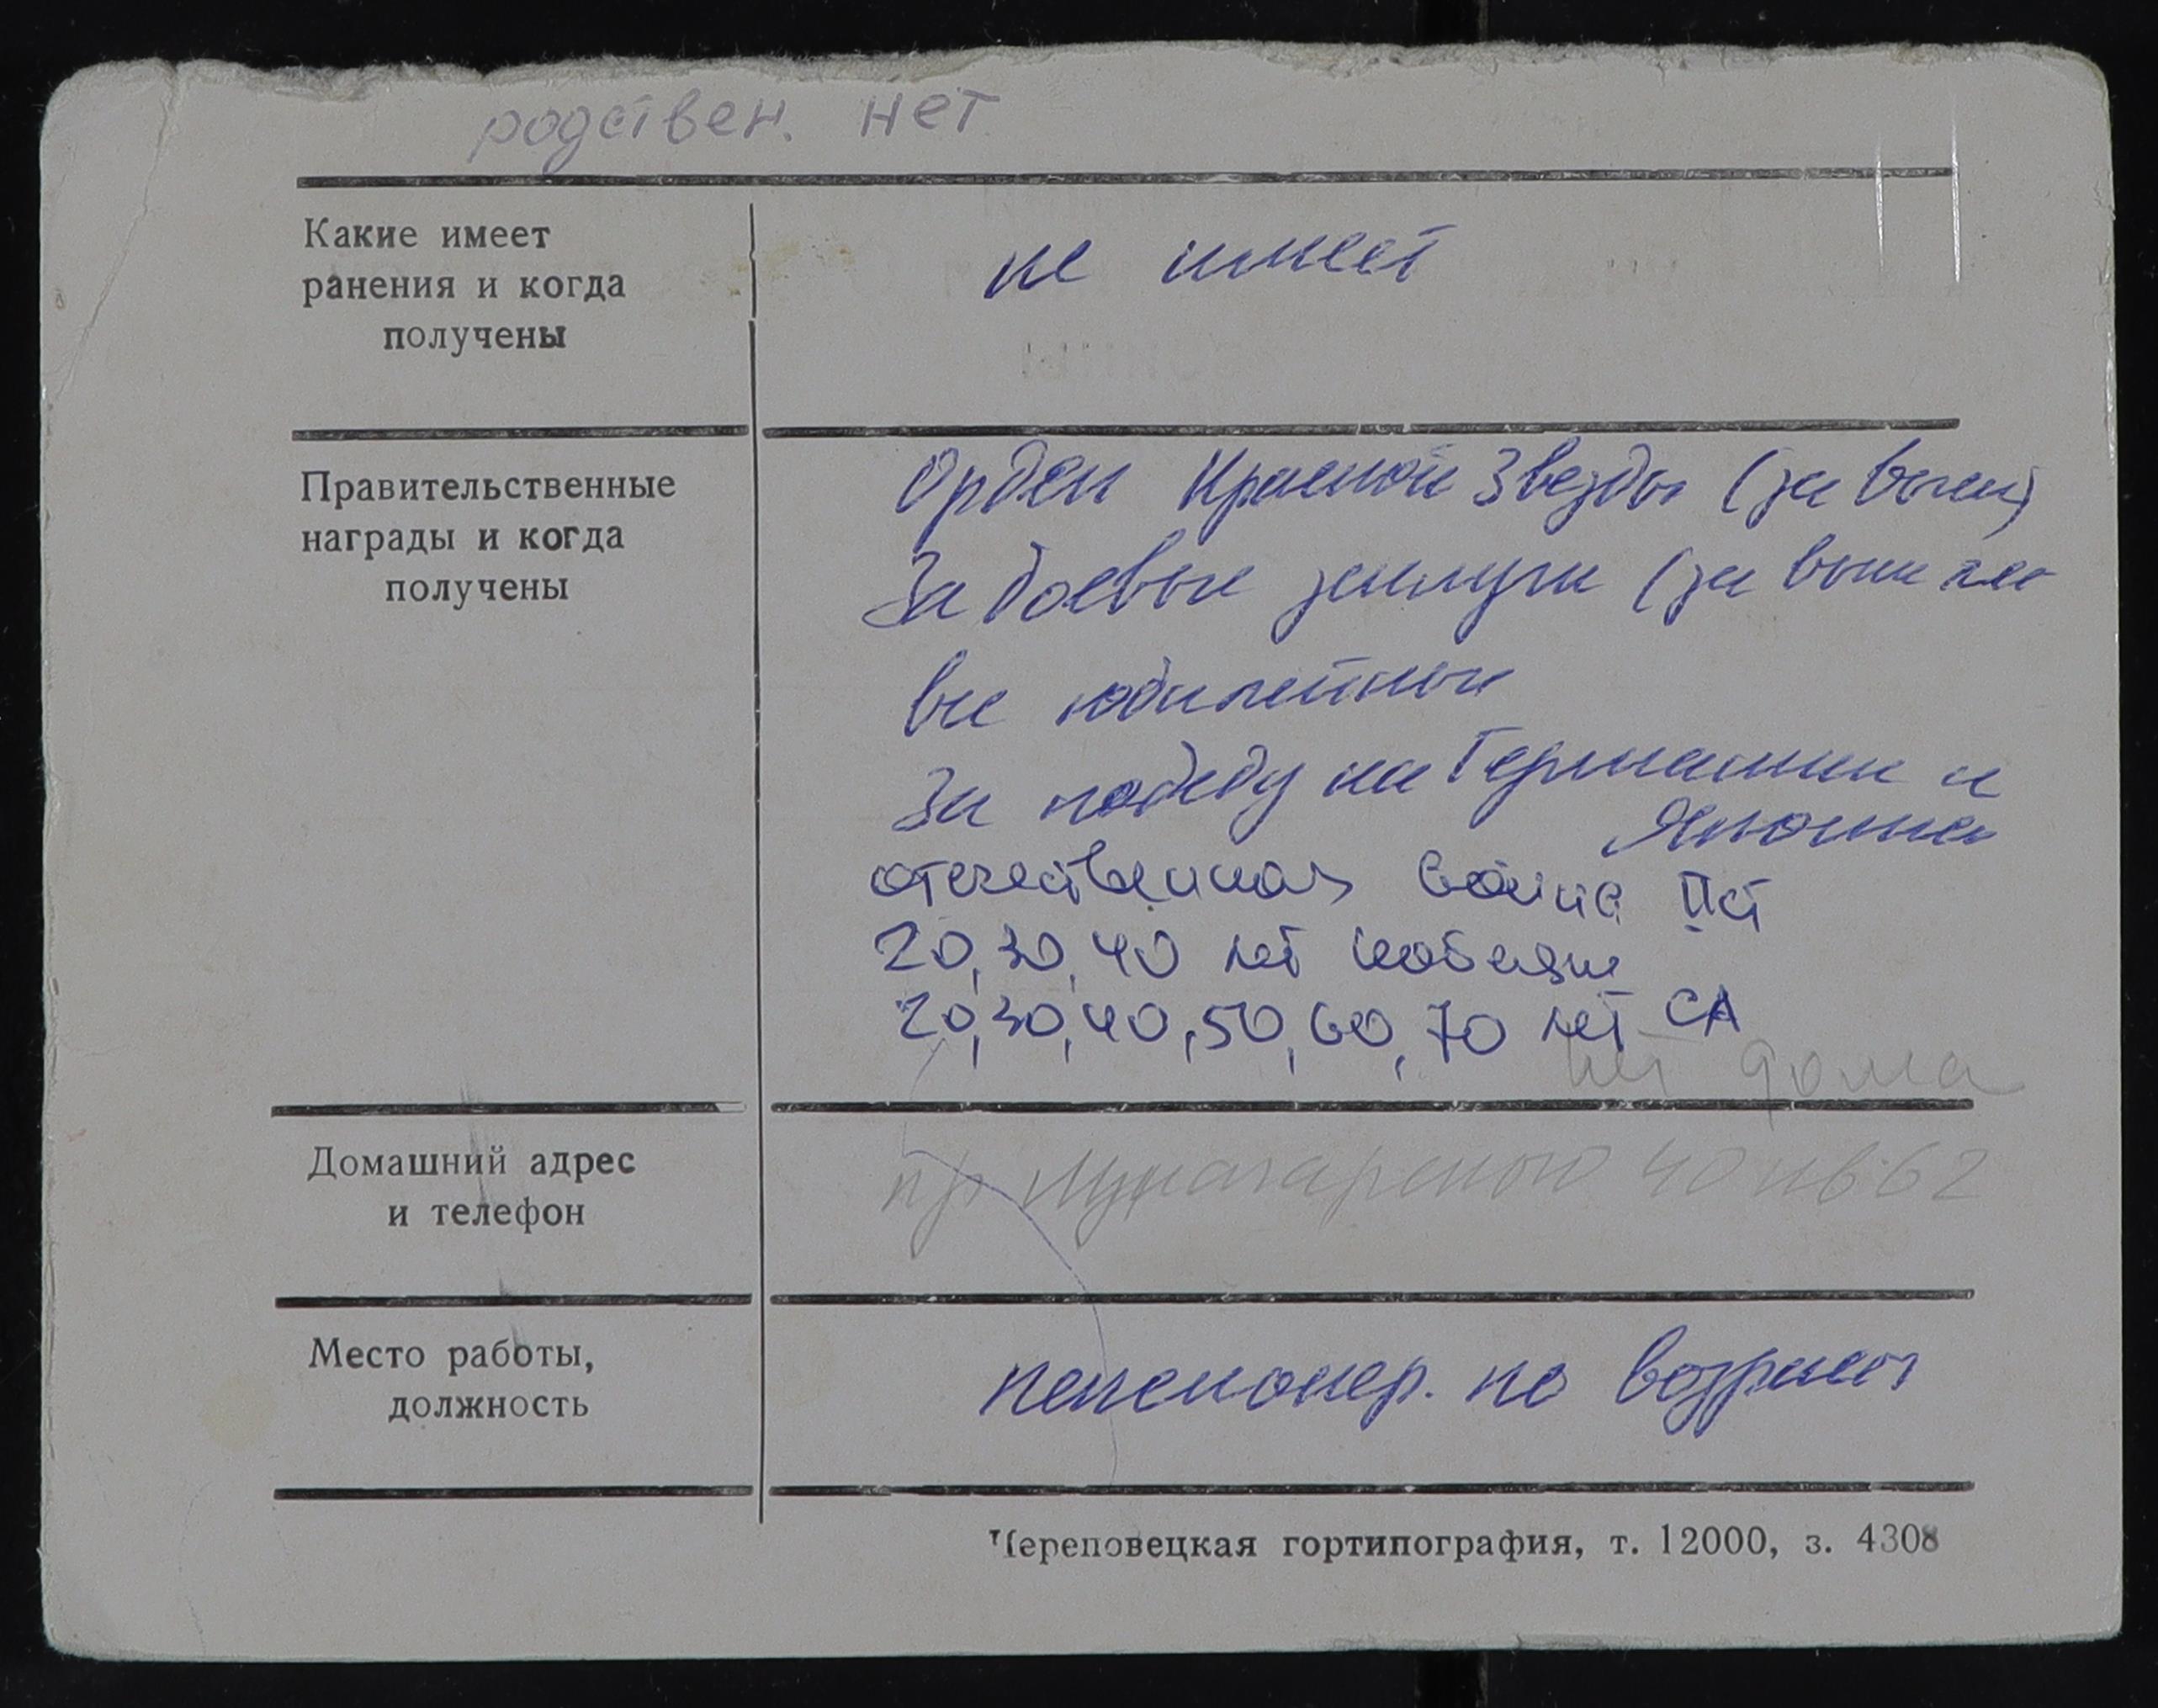 родствен. нет
Какие имеет
ранения и когда
получены
не имеет
Правительственные
награды и когда
получены
Орден Красной Звезды (за
За боевые заслуги (за
все юбилейные
За победу на Германии и
Японией
отечественная война II ст
20, 30, 40 лет победы
20, 30, 40, 50, 60, 70 лет СА
нет дома
Домашний адрес
и телефон
пр Луначарского 40 кв 62
Место работы,
должность
пенсионер. по возрасту
Череповецкая гортипография, т. 12000, з. 4308